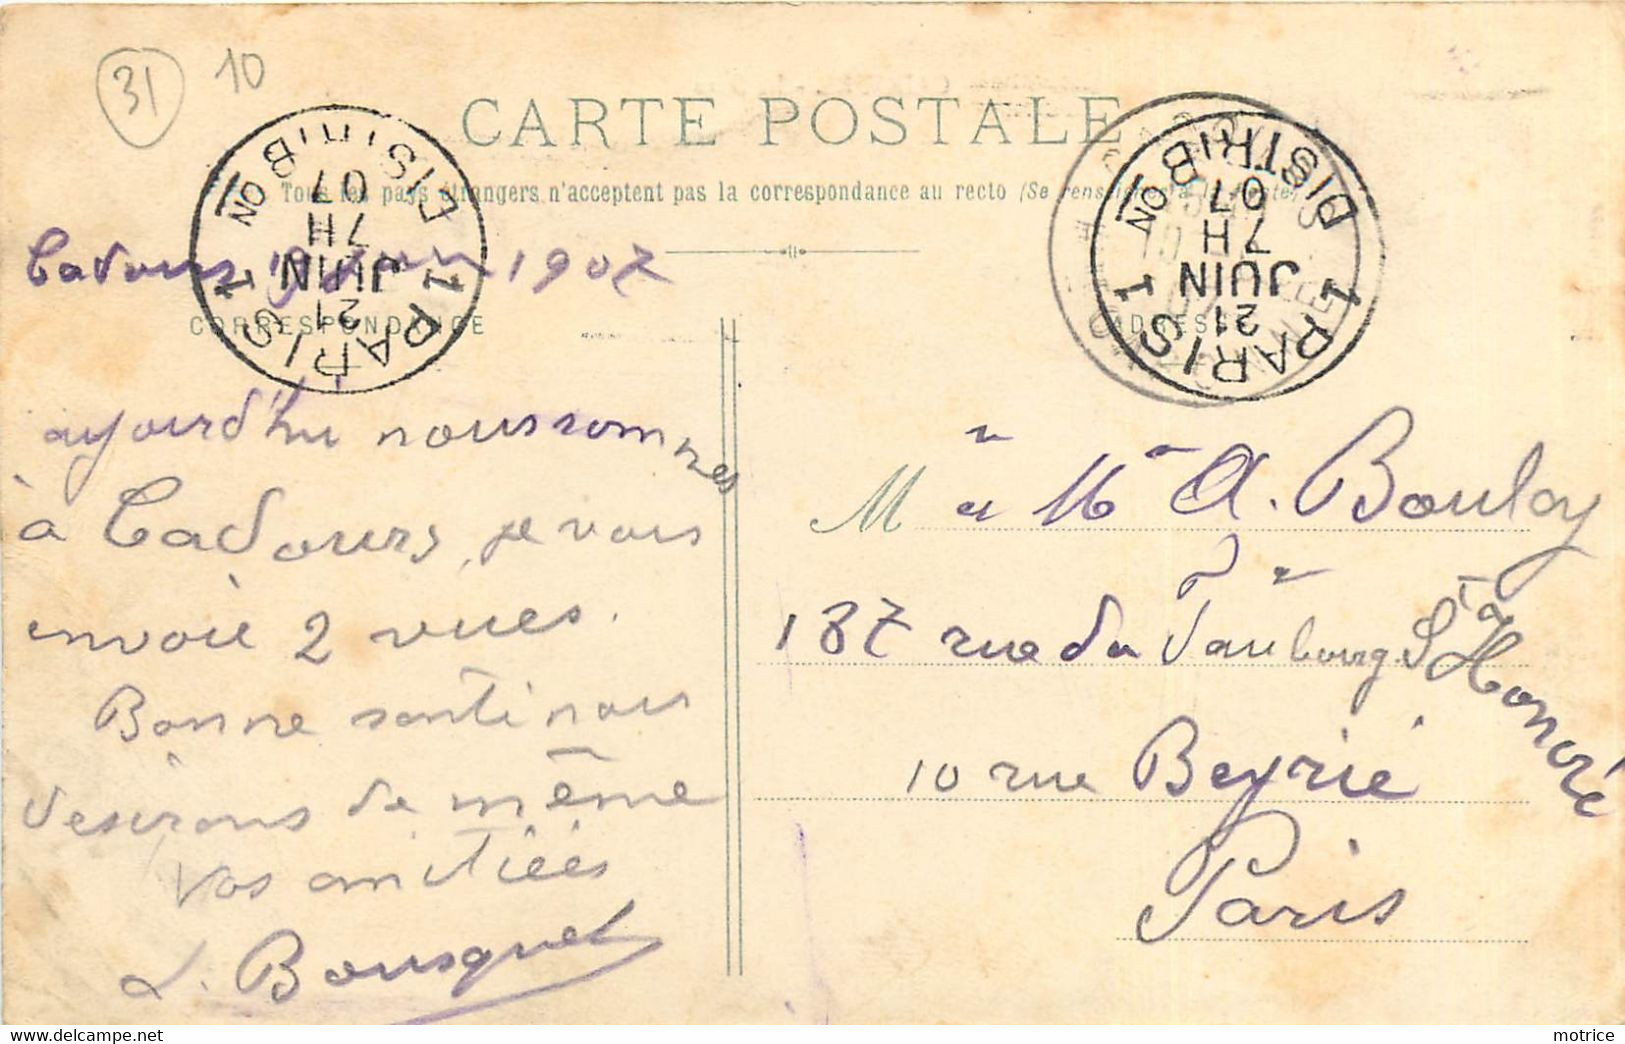 31 10
CARTE POSTALE
Tous les pays étrangers n'acceptent pas la correspondance au recto (Se renseigner à la Poste)
PARIS 1 DISTRIBON
21
JUIN
7H
07
PARIS 1 DISTRIBON
21
JUIN
7H
07
Cadours 19 juin 1907
CORRESPONDANCE
ADRESSE
ajourd'hui nous sommes
à Cadours, je vous
envoie 2 vues.
Bonne santé nous
desirons de même
Vos amitiées
L. Bousquet
M r et Me A. Bouloy
187 rue du Faubourg St Honoré
10 rue Beyrié
Paris
delcampe.net
motrice